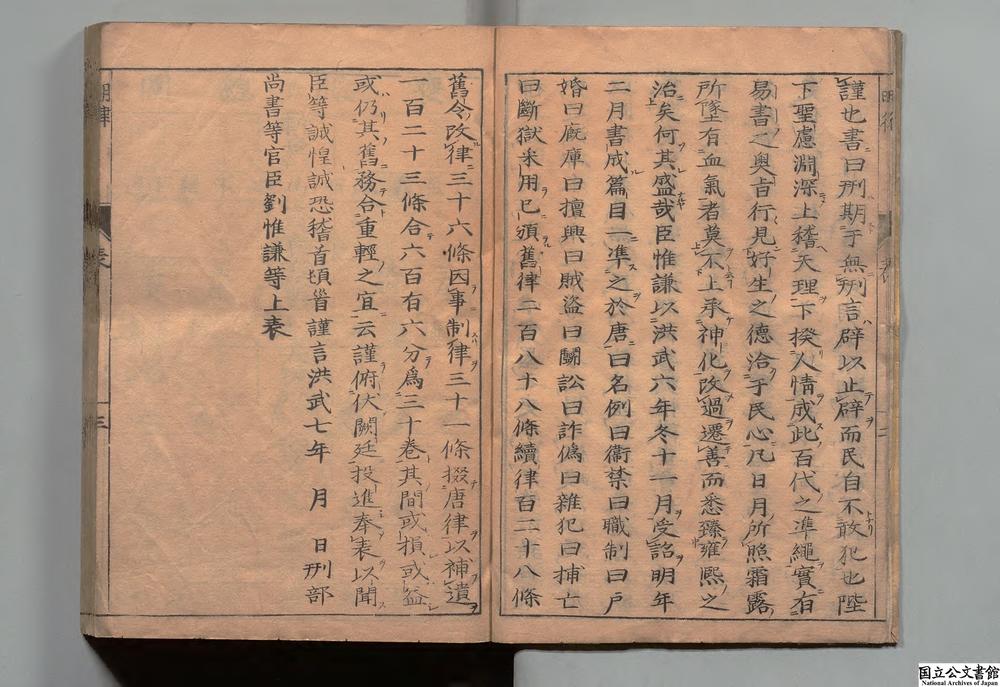 謹也書曰刑期于無刑言辟以止辟而民自不敢犯也陛
下聖慮淵深上稽天理下揆人情成此百代之凖繩實有
易書之奥旨行見好生之德洽于民心凡日月所照霜露
所墜有血氣者莫不上承神化改過遷善而悉臻雍熙之
治矣何其盛哉臣惟謙以洪武六年冬十一月受詔明年
二月書成篇目一凖之於唐曰名例曰衞禁曰職制曰戸
婚曰廐庫曰擅興曰賊盗曰鬭訟曰詐僞曰雜犯曰捕亡
曰斷獄采用已頒舊律二百八十八條續律百二十八條
舊令改律三十六條因事制律三十一條掇唐律以補遺
一百二十三條合六百有六分爲三十巻其間或損或益
或仍其舊務合重輕之宜云謹俯伏闕廷投進奉表以聞
臣等誠惶誠恐稽首頓首謹言洪武七年　月　日刑部
尚書等官臣劉惟謙等上表
明律
表
三
国立公文書館
National Archives of Japan